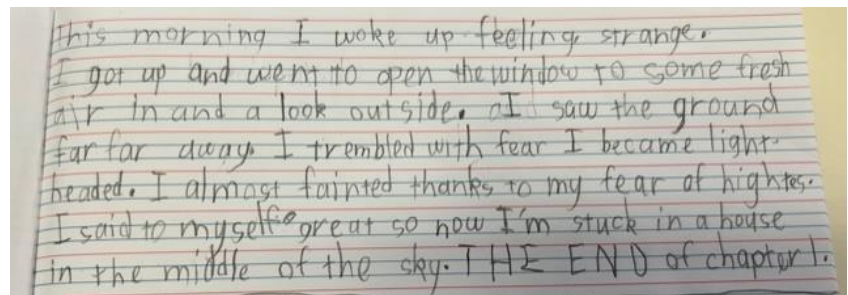 This morning I woke up feeling strange.
I got up and went to open the window to some fresh
air in and a look outside. I saw the ground
far far away. I trembled with fear I became light-
headed. I almost fainted thanks to my fear of hightes.
I said to myself great so now I'm stuck in a house
in the middle of the sky. THE END of chapter 1.